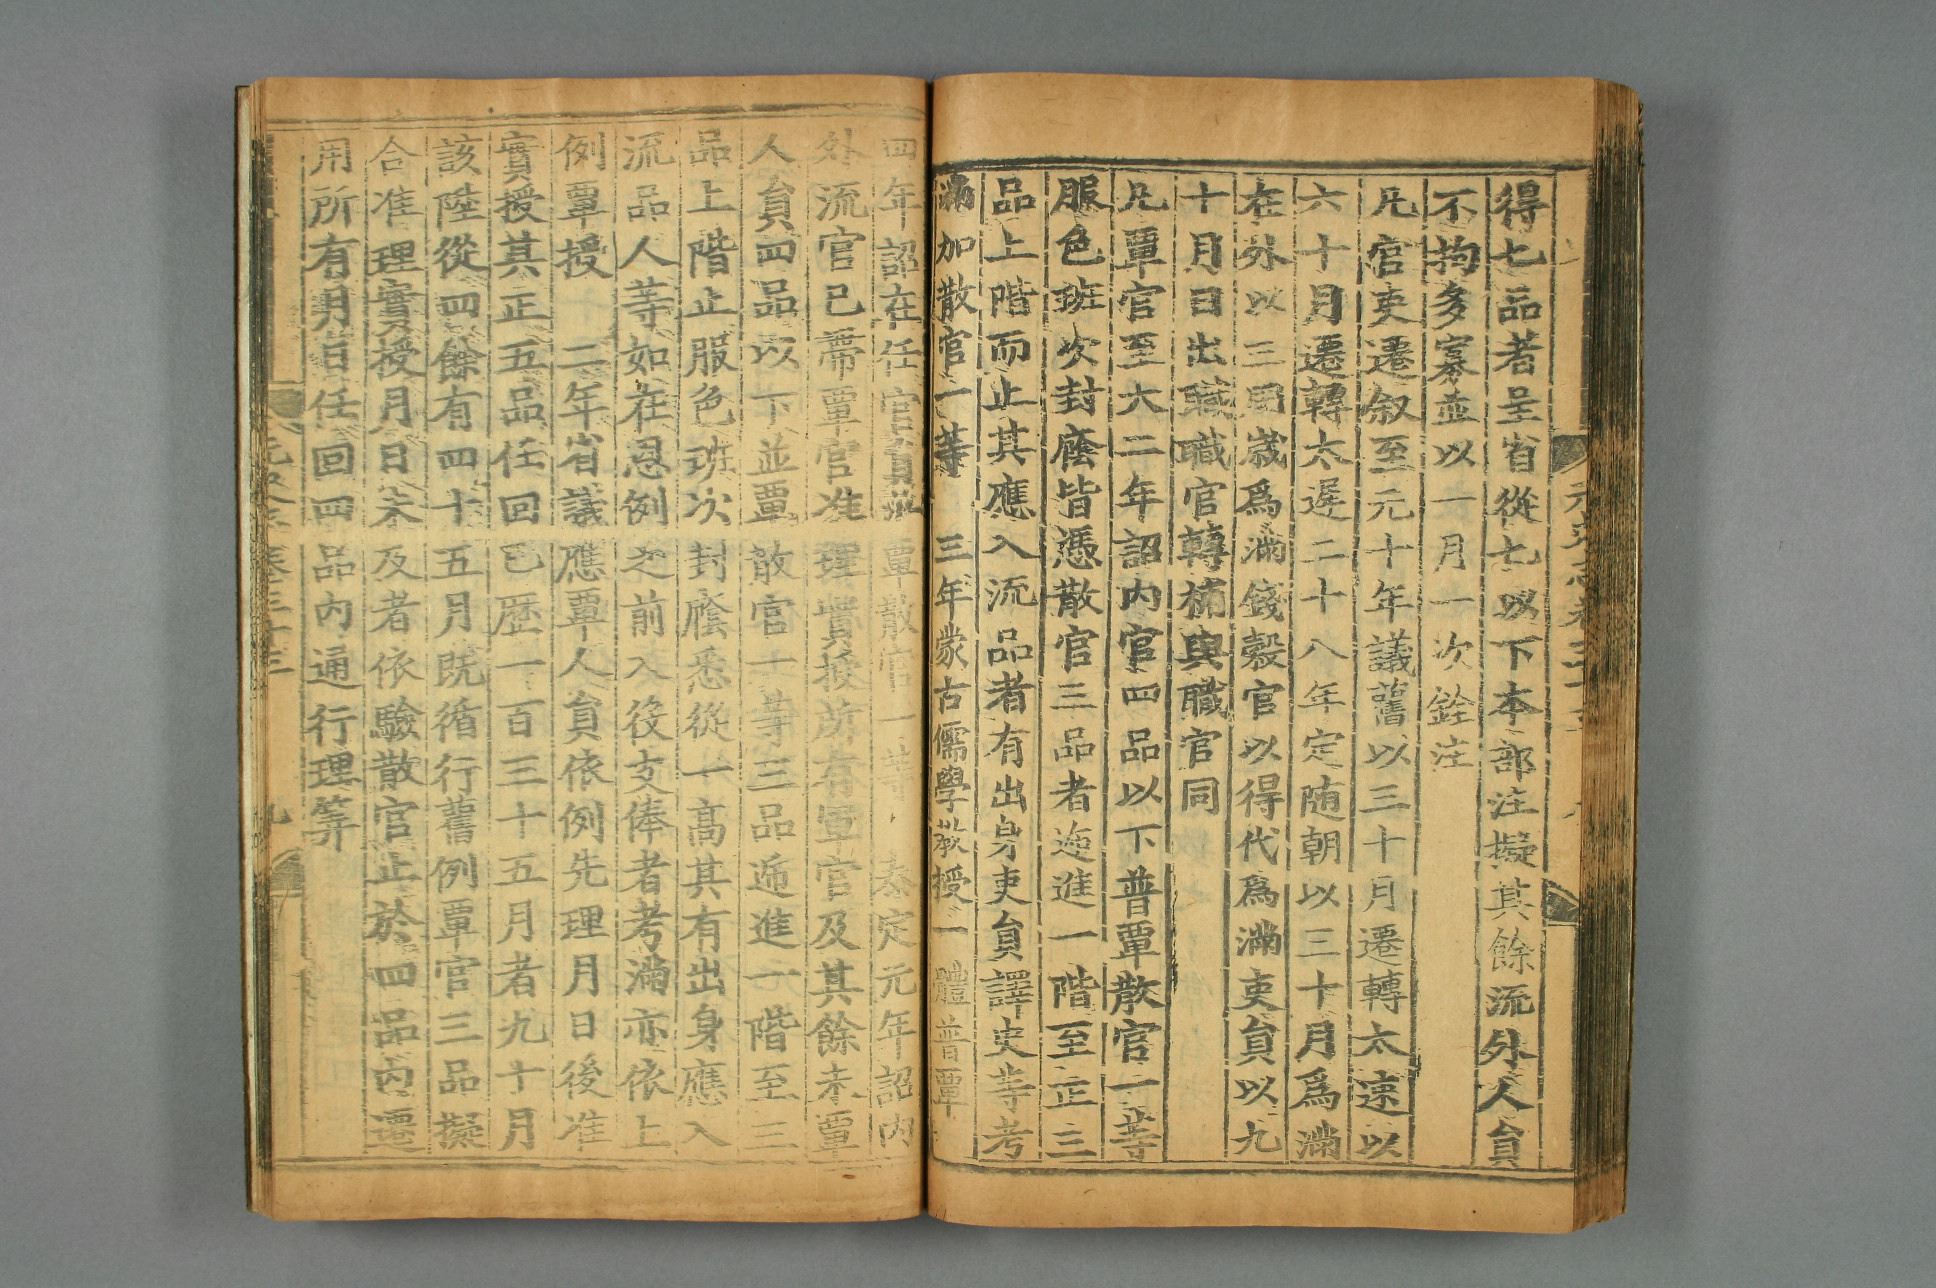 得七品者呈省從七以下本部注擬其餘流外人員
不拘多寡並以一月一次銓注
凡官吏遷叙至元十年議舊以三十月遷轉太速以
六十月遷轉太遲二十八年定随朝以三十月爲滿
在外以三周歲爲滿錢穀官以得代爲滿吏員以九
十月日出職職官轉補與職官同
凡覃官至大二年詔内官四品以下普覃散官一等
服色班次封廕皆憑散官三品者遞進一階至正三
品上階而止其應入流品者有出身吏員譯史等考
滿加散官一等　三年蒙古儒學教授一體普覃
四年詔在任官員並覃散官一等　泰定元年詔内
外流官已帶覃官准理實授所有軍官及其餘未覃
人員四品以下並覃散官一等三品遞進一階至三
品上階止服色班次封廕悉從一高其有出身應入
流品人等如在恩例之前入役支俸者考滿亦依上
例覃授　二年省議應覃人員依例先理月日後准
實授其正五品任回已歷一百三十五月者九十月
該陞從四餘有四十五月既循行舊例覃官三品擬
合准理實授月日未及者依驗散官止於四品内遷
用所有月日任回四品内通行理筭